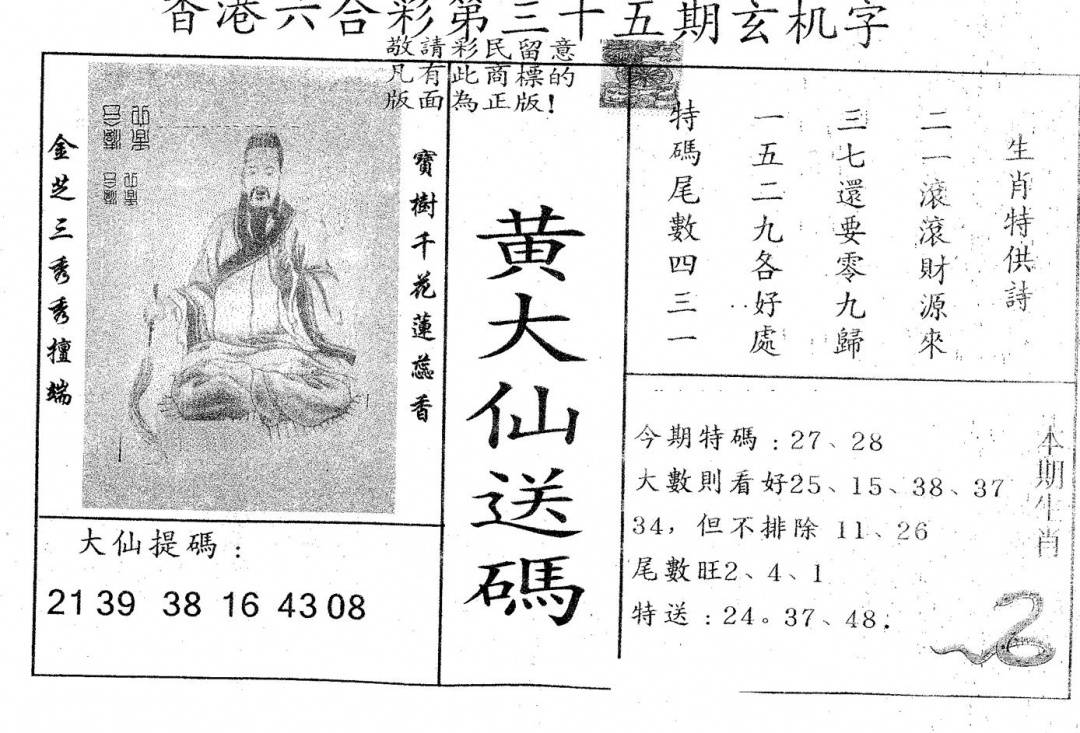 香港六合彩第三十五期玄机字
敬請彩民留意
凡有此商標的
版面為正版!
寶樹千花蓮蕊香
金芝三秀秀擅端
大仙提碼:
21 39 38 16 43 08
黄大仙送碼
生肖特供詩
二一滚滚財源來
三七還要零九歸
一五二九各好處
特碼尾數四三一
今期特碼:27、28
大數則看好25、15、38、37
34,但不排除 11、26
尾數旺2、4、1
特送:24。37、48.
本期生肖